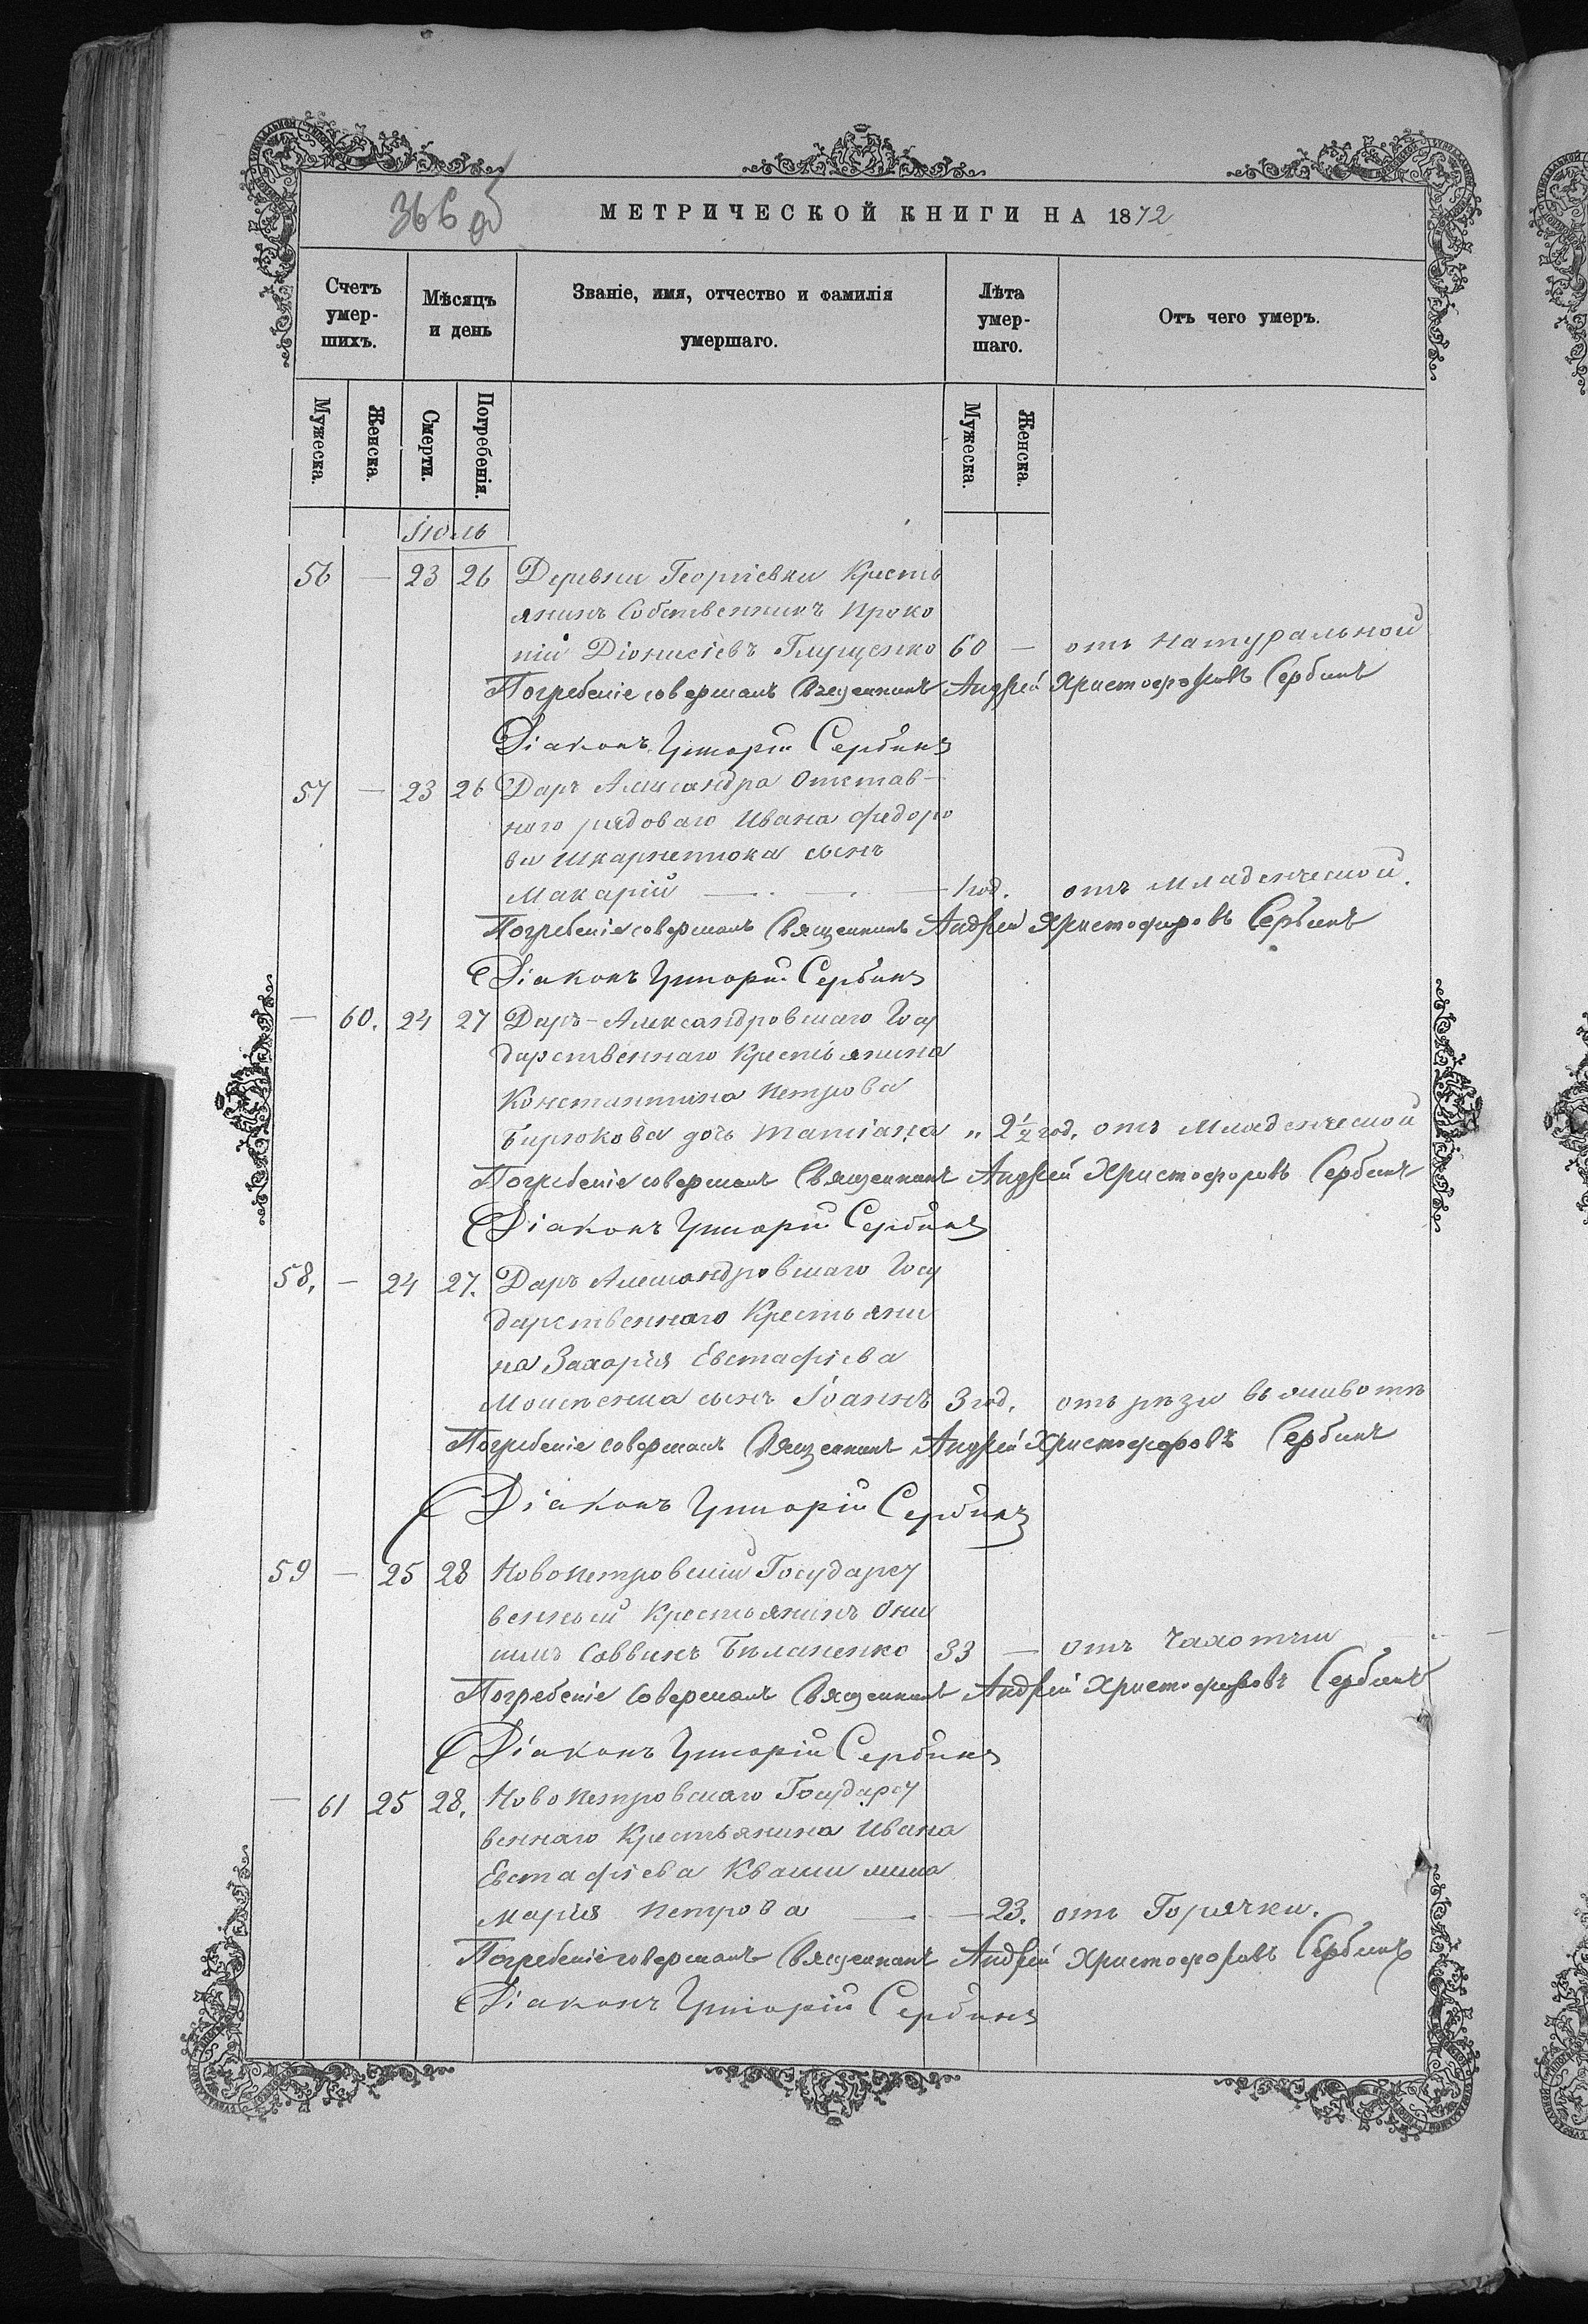 366 об
МЕТРИЧЕСКОЙ КНИГИ НА 1872
Счетъ умер-шихъ.
Мѣсяцъ и день
Званіе, имя, отчество и фамилія умершаго.
Лѣта умер-шаго.
Отъ чего умеръ.
Мужеска. Женска. Смерти. Погребенія. Мужеска. Женска.
Іюль
56 — 23 26 Деревни Георгіевки Кресть
янинъ Собственникъ Проко
пій Діонисіевъ Глущенко 60 — отъ Натуральной
Погребеніе совершалъ Священникъ Андрей Христофоровъ Сербинъ
Діаконъ Григорій Сербинъ
57 — 23 26 Даръ Александра Отстав-
ного рядоваго Ивана Федоро
ва сынъ
Макарій — 1 год. отъ Младенческой.
Погребеніе совершалъ Священникъ Андрей Христофоровъ Сербинъ
Діаконъ Григорій Сербинъ
— 60. 24 27 Даръ-Александровскаго Госу
дарственнаго Крестьянина
Константина Петрова
Бирюкова дочь Татіана „ 2 1/2 год. отъ Младенческой
Погребеніе совершалъ Священникъ Андрей Христофоровъ Сербинъ
Діаконъ Григорій Сербинъ
58. — 24 27. Даръ Александровскаго Госу
дарственнаго Крестьяни
на Захарія Евстафіева
сынъ Іоаннъ 3 год. отъ рѣзи въ животѣ
Погребеніе совершалъ Священникъ Андрей Христофоровъ Сербинъ
Діаконъ Григорій Сербинъ
59 — 25 28 Новопетровскій Государст
венный Крестьянинъ Они
симъ Саввинъ Биланенко 33 — отъ Чахотки
Погребеніе Совершалъ Священникъ Андрей Христофоровъ Сербинъ
Діаконъ Григорій Сербинъ
— 61 25 28. Новопетровскаго Государст
веннаго Крестьянина Ивана
Евстафіева Кваши жена
Марія Петрова — 23. отъ Горячки.
Погребеніе совершалъ Священникъ Андрей Христофоровъ Сербинъ
Діаконъ Григорій Сербинъ